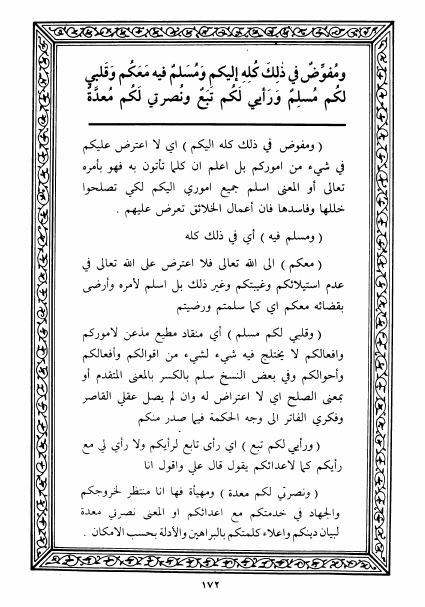 ومُفوِّضٌ في ذٰلِكَ كُلِهِ إليكم وَمُسَلمٌ فيه مَعَكُم وَقَلبي
لكُم مُسلِمٌ وَرَأيي لَكُم تَبَعٌ ونُصرتي لَكُم مُعدَّةٌ
( ومفوض في ذلك كله اليكم ) اي لا اعترض عليكم
في شيء من اموركم بل اعلم ان كلما تأتون به فهو بأمره
تعالى أو المعنى اسلم جميع اموري اليكم لكي تصلحوا
خللها وفاسدها فان أعمال الخلائق تعرض عليهم .
( ومسلم فيه ) أي في ذلك كله
( معكم ) الى الله تعالى فلا اعترض على الله تعالى في
عدم استيلائكم وغيبتكم وغير ذلك بل اسلم لأمره وأرضى
بقضائه معكم اي كما سلمتم ورضيتم
( وقلبي لكم مسلم ) أي منقاد مطيع مذعن لاموركم
وافعالكم لا يختلج فيه شيء لشيء من اقوالكم وأفعالكم
وأحوالكم وفي بعض النسخ سلم بالكسر بالمعنى المتقدم أو
بمعنى الصلح اي لا اعتراض له وان لم يصل عقلي القاصر
وفكري الفاتر الى وجه الحكمة فيما صدر منكم
( ورأيي لكم تبع ) اي رأى تابع لرأيكم ولا رأي لي مع
رأيكم كما لاعدائكم يقول قال علي واقول انا
( ونصرتي لكم معدة ) ومهيأة فها انا منتظر لخروجكم
والجهاد في خدمتكم مع اعدائكم او المعنى نصرتي معدة
لبيان دينكم واعلاء كلمتكم بالبراهين والأدلة بحسب الامكان .
١٧٢